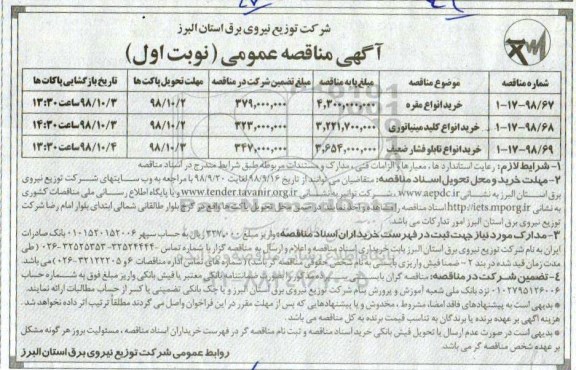 شرکت توزیع نیروی برق استان البرز
آگهی مناقصه عمومی (نوبت اول)
شماره مناقصه موضوع مناقصه مبلغ پایه مناقصه مبلغ تضمین شرکت در مناقصه مهلت تحویل پاکت ها تاریخ بازگشایی پاکات ها
۱-۱۷-۹۸/۶۷ خرید انواع مقره ۴,۳۰۰,۰۰۰,۰۰۰ ۳۷۹,۰۰۰,۰۰۰ ۹۸/۱۰/۲ ۹۸/۱۰/۳ ساعت ۱۳:۳۰
۱-۱۷-۹۸/۶۸ خرید انواع کلید مینیاتوری ۳,۲۲۱,۷۰۰,۰۰۰ ۳۲۳,۰۰۰,۰۰۰ ۹۸/۱۰/۲ ۹۸/۱۰/۳ ساعت ۱۴:۳۰
۱-۱۷-۹۸/۶۹ خرید انواع تابلو فشار ضعیف ۳,۶۵۴,۰۰۰,۰۰۰ ۳۴۷,۰۰۰,۰۰۰ ۹۸/۱۰/۳ ۹۸/۱۰/۴ ساعت ۱۳:۳۰
۱- شرایط لازم: رعایت استانداردها، معیارها و الزامات فنی، مدارک و مستندات مربوطه طبق شرایط مندرج در اسناد مناقصه
۲- مهلت خرید و محل تحویل اسناد مناقصه: متقاضیان می توانند از تاریخ ۹۸/۹/۱۶ لغایت ۹۸/۹/۲۰ با مراجعه به وب سایتهای شرکت توزیع نیروی
برق استان البرز به نشانی www.aepdc.ir، شرکت توانیر به نشانی www.tender.tavanir.org.ir و یا پایگاه اطلاع رسانی ملی مناقصات کشوری
به نشانی http://iets.mporg.ir اسناد مناقصه را بلوار طالقانی شمالی ابتدای بلوار امام رضا شرکت
توزیع نیروی برق استان البرز امور تدارکات می باشد.
۳- مدارک مورد نیاز جهت ثبت در فهرست خریداران اسناد مناقصه: واریز مبلغ ریال به حساب سپهر ۰۱۰۱۵۲۰۱۵۲۰۰۶ بانک صادرات
ایران به نام شرکت توزیع نیروی برق استان البرز بابت خریداری اسناد مناقصه و اعلام و ارسال به مناقصه گزار با شماره تماس
۴- تضمین شرکت در مناقصه: ضمانتنامه بانکی معتبر یا فیش بانکی واریز مبلغ فوق به شماره حساب
نزد بانک ملی شعبه آموزش و پرورش بنام شرکت توزیع نیروی برق استان البرز و یا چک بانکی تضمینی یا کسر از حساب مطالبات ارائه نمایند.
* بدیهی است به پیشنهادهای فاقد امضا، مشروط، مخدوش و یا پیشنهادهایی که پس از مهلت مقرر در این فراخوان واصل می گردند مطلقاً ترتیب اثر داده نخواهد شد.
هزینه آگهی بر عهده برنده یا برندگان به تناسب قیمت برنده به کل مناقصه می باشد.
* بدیهی است در صورت عدم ارسال یا تحویل فیش بانکی خرید اسناد مناقصه و ثبت نام مناقصه گر در فهرست خریداران اسناد مناقصه، مسئولیت بروز هر گونه مشکل
بر عهده شخص مناقصه گر می باشد.
روابط عمومی شرکت توزیع نیروی برق استان البرز